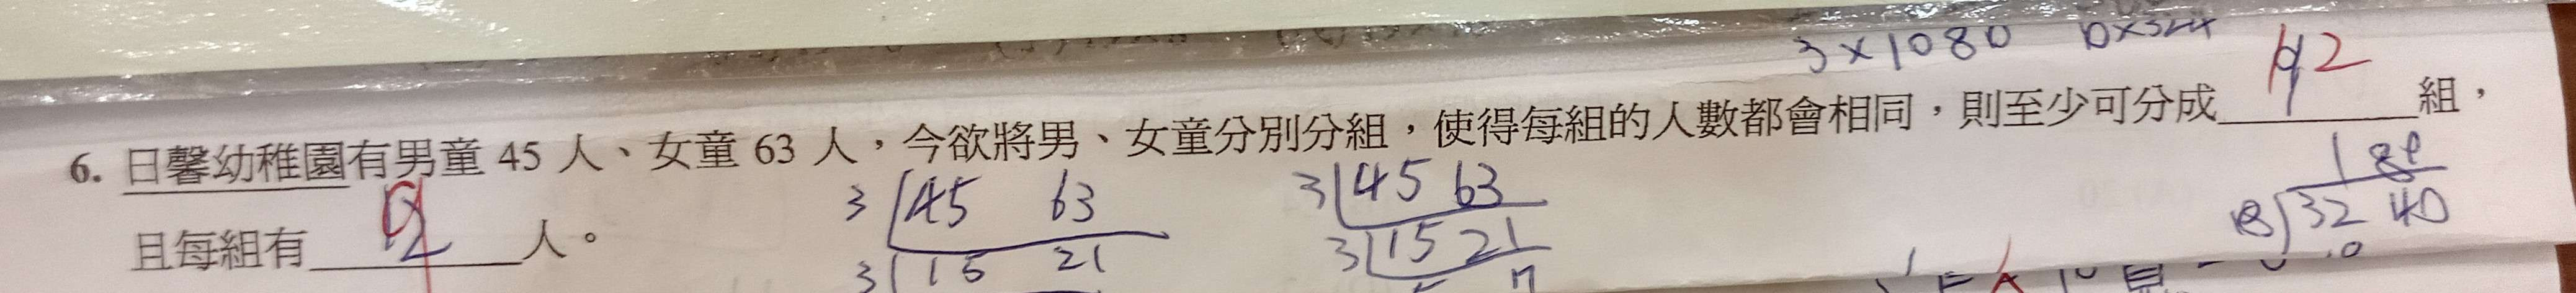 3×1080
12
6. 日馨幼稚園有男童 45 人、女童 63 人，今欲將男、女童分別分組，使得每組的人數都會相同，則至少可分成 組，
且每組有 9 人。
3 45 63
3 15 21
3 45 63
3 15 21
5 7
18
32 40